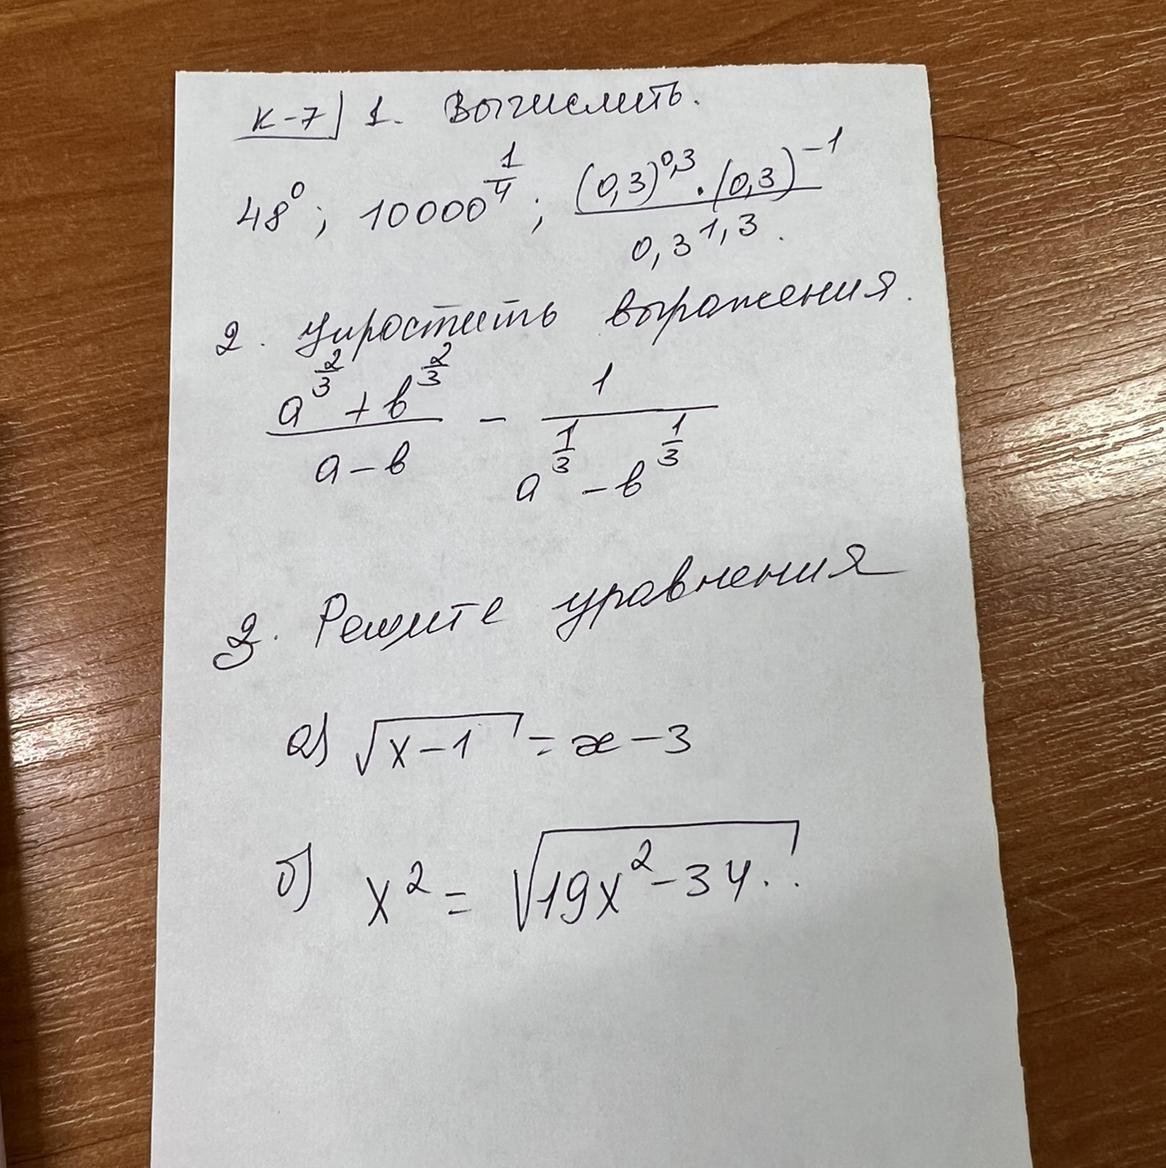 К-7 1. Вычислить.
48⁰; 10000^(1/4); ((0,3)^0,3 · (0,3)^-1) / 0,3^1,3.
2. Упростить выражения.
(a^(2/3) + b^(2/3)) / (a - b) - 1 / (a^(1/3) - b^(1/3))
3. Решите уравнения
а) √(x-1) = x - 3
б) x² = √(19x² - 34)..